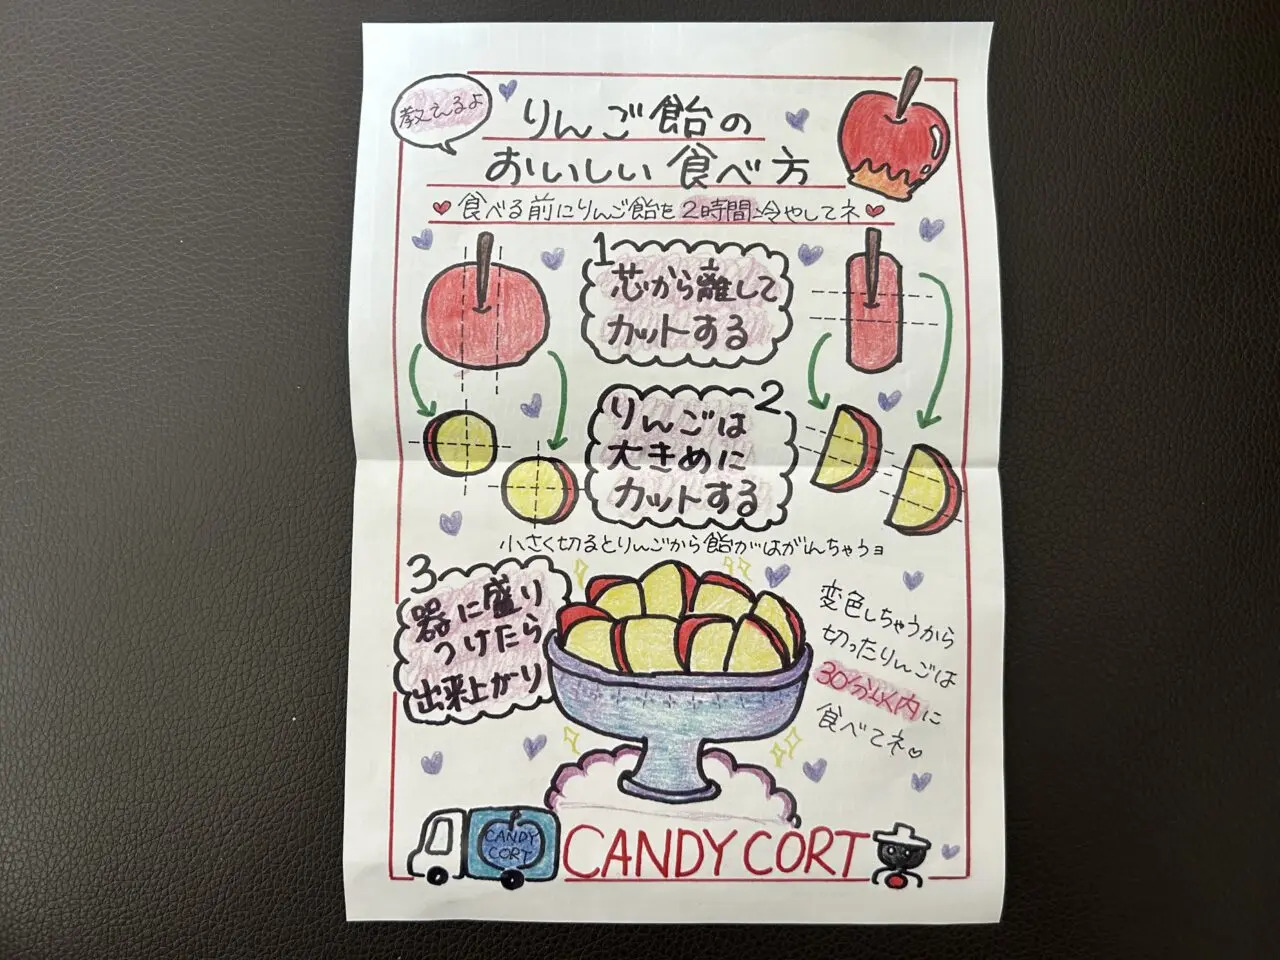 教えるよ
りんご飴の
おいしい食べ方
食べる前にりんご飴を2時間冷やしてネ
1
芯から離して
カットする
2
りんごは
大きめに
カットする
小さく切るとりんごから飴がはがれちゃうョ
3
器に盛り
つけたら
出来上がり
変色しちゃうから
切ったりんごは
30分以内に
食べてネ
CANDY
CORT
CANDY CORT